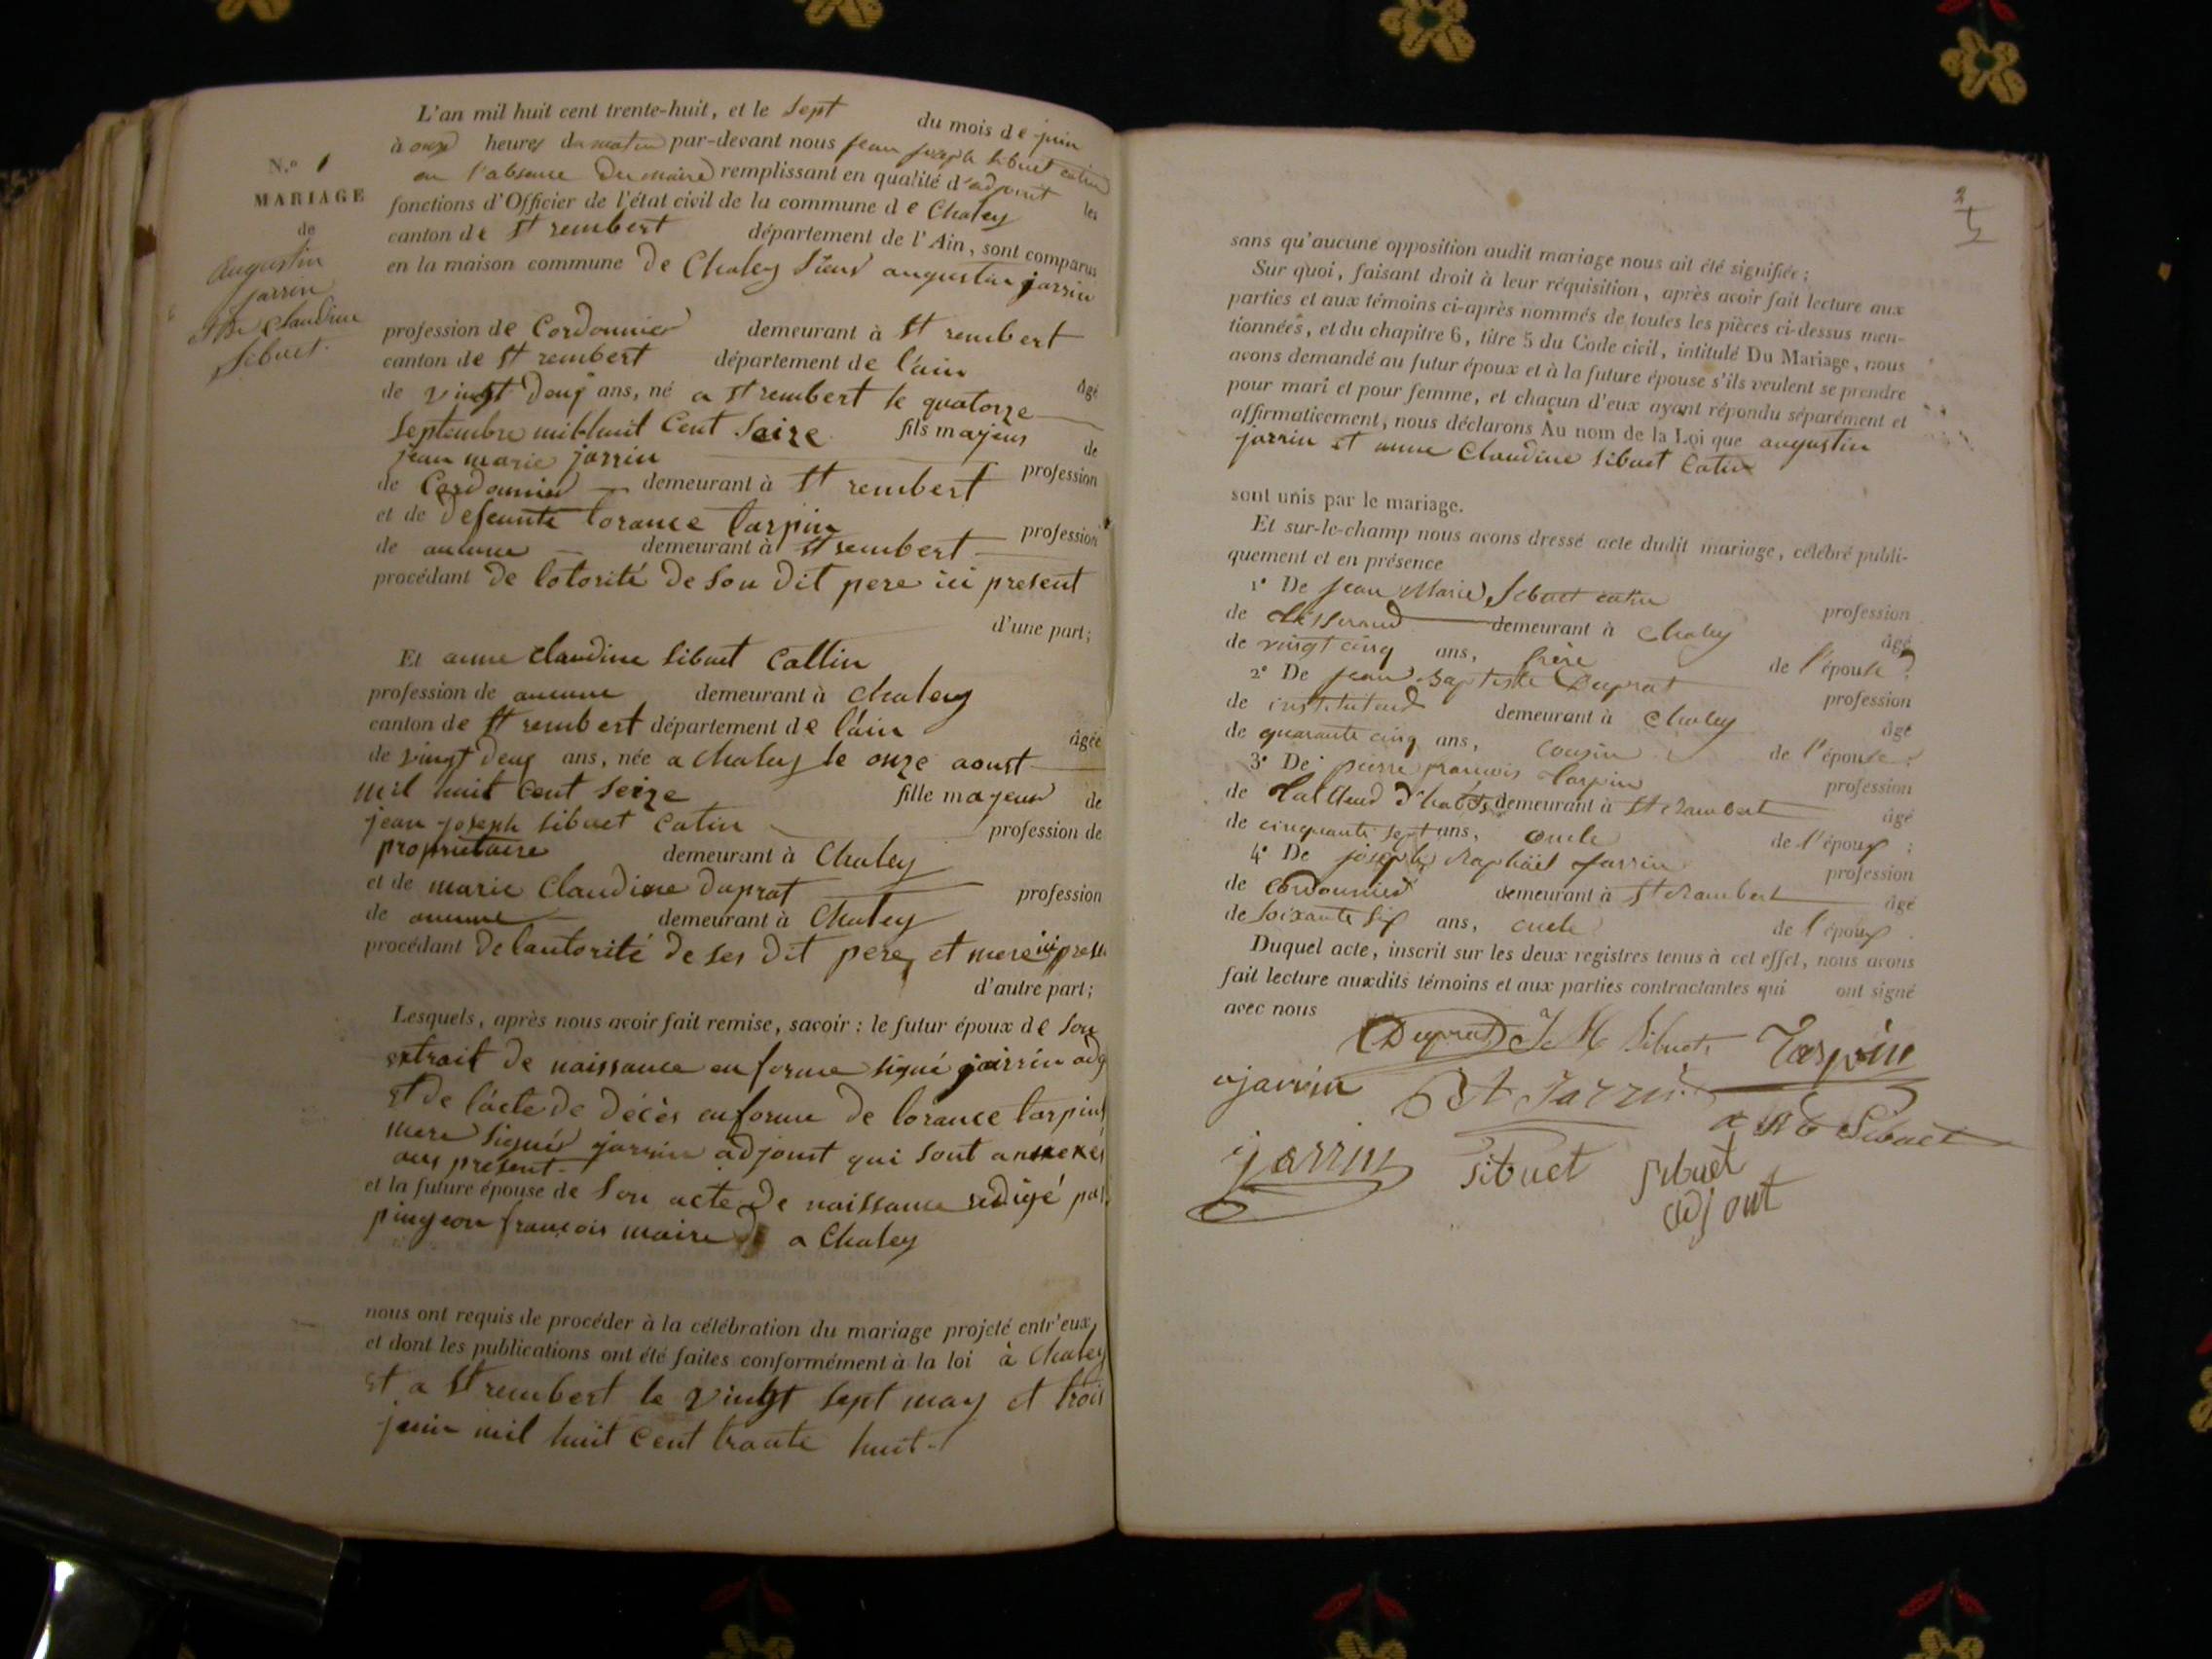 N.o 1
MARIAGE
de
augustin
jarrin
et De claudine
Sibuet.
L'an mil huit cent trente-huit, et le sept du mois de juin
à onze heures du matin par-devant nous jean joseph sibuet catin
en l'absence Du maire remplissant en qualité d'adjouint les
fonctions d'Officier de l'état civil de la commune de Chaley
canton de St rembert département de l'Ain, sont comparus
en la maison commune De Chaley Sieur augustin jarrin
profession de Cordonnier demeurant à St rembert
canton de St rembert département de l'ain
âgé
de vingt Deux ans, né a St rembert le quatorze
Septembre mil huit Cent Seize fils majeur de
jean marie jarrin profession
de Cordonnier demeurant à St rembert
et de Defeunte lorance tarpin profession
de aucune demeurant à St rembert
procédant De lotorité De Son Dit pere ici present
d'une part;
Et anne claudine Sibuet Cattin
profession de aucune demeurant à Chaley
canton de St rembert département de l'ain
âgée
de vingt Deux ans, née a Chaley le onze aoust
mil huit Cent Seize fille majeur de
jean joseph Sibuet Catin profession de
proprietaire demeurant à Chaley
et de marie Claudine duprat profession
de aucune demeurant à Chaley
procédant De lautorité de ses Dit pere et mere ici present
d'autre part;
Lesquels, après nous avoir fait remise, savoir : le futur époux de Son
extrait De naissance en forme signé jarrin adj
et De l'acte De Décès en forme De lorance tarpin
mere signés jarrin adjouint qui sont annexés
aus present
et la future épouse de Son acte De naissance redigé par
pingeon françois maire a Chaley
nous ont requis de procéder à la célébration du mariage projeté entr'eux,
et dont les publications ont été faites conformément à la loi à Chaley
et a St rembert le vingt Sept may et trois
juin mil huit Cent trante huit.
2
sans qu'aucune opposition audit mariage nous ait été signifiée ;
Sur quoi, faisant droit à leur réquisition, après avoir fait lecture aux
parties et aux témoins ci-après nommés de toutes les pièces ci-dessus men-
tionnées, et du chapitre 6, titre 5 du Code civil, intitulé Du Mariage, nous
avons demandé au futur époux et à la future épouse s'ils veulent se prendre
pour mari et pour femme, et chacun d'eux ayant répondu séparément et
affirmativement, nous déclarons Au nom de la Loi que augustin
jarrin et anne Claudine Sibuet Catin
sont unis par le mariage.
Et sur-le-champ nous avons dressé acte dudit mariage, célébré publi-
quement et en présence
1° De jean Marie Sibuet catin profession
de tisserand demeurant à chaley âgé
de vingt cinq ans, frère de l'épouse ;
2° De jean Baptiste Duprat profession
de instituteur demeurant à chaley âgé
de quarante cinq ans, cousin de l'épouse ;
3° De pierre francois tarpin profession
de tailleur d'habits demeurant à St rambert âgé
de cinquante sept ans, oncle de l'époux ;
4° De joseph Raphäel jarrin profession
de cordonnier demeurant à St Rambert âgé
de soixante six ans, oncle de l'époux .
Duquel acte, inscrit sur les deux registres tenus à cet effet, nous avons
fait lecture auxdits témoins et aux parties contractantes qui ont signé
avec nous
Duprat J M Sibuet Tarpin
ajarrin Jarrin Sibuet
jarrin Sibuet Sibuet
adjout